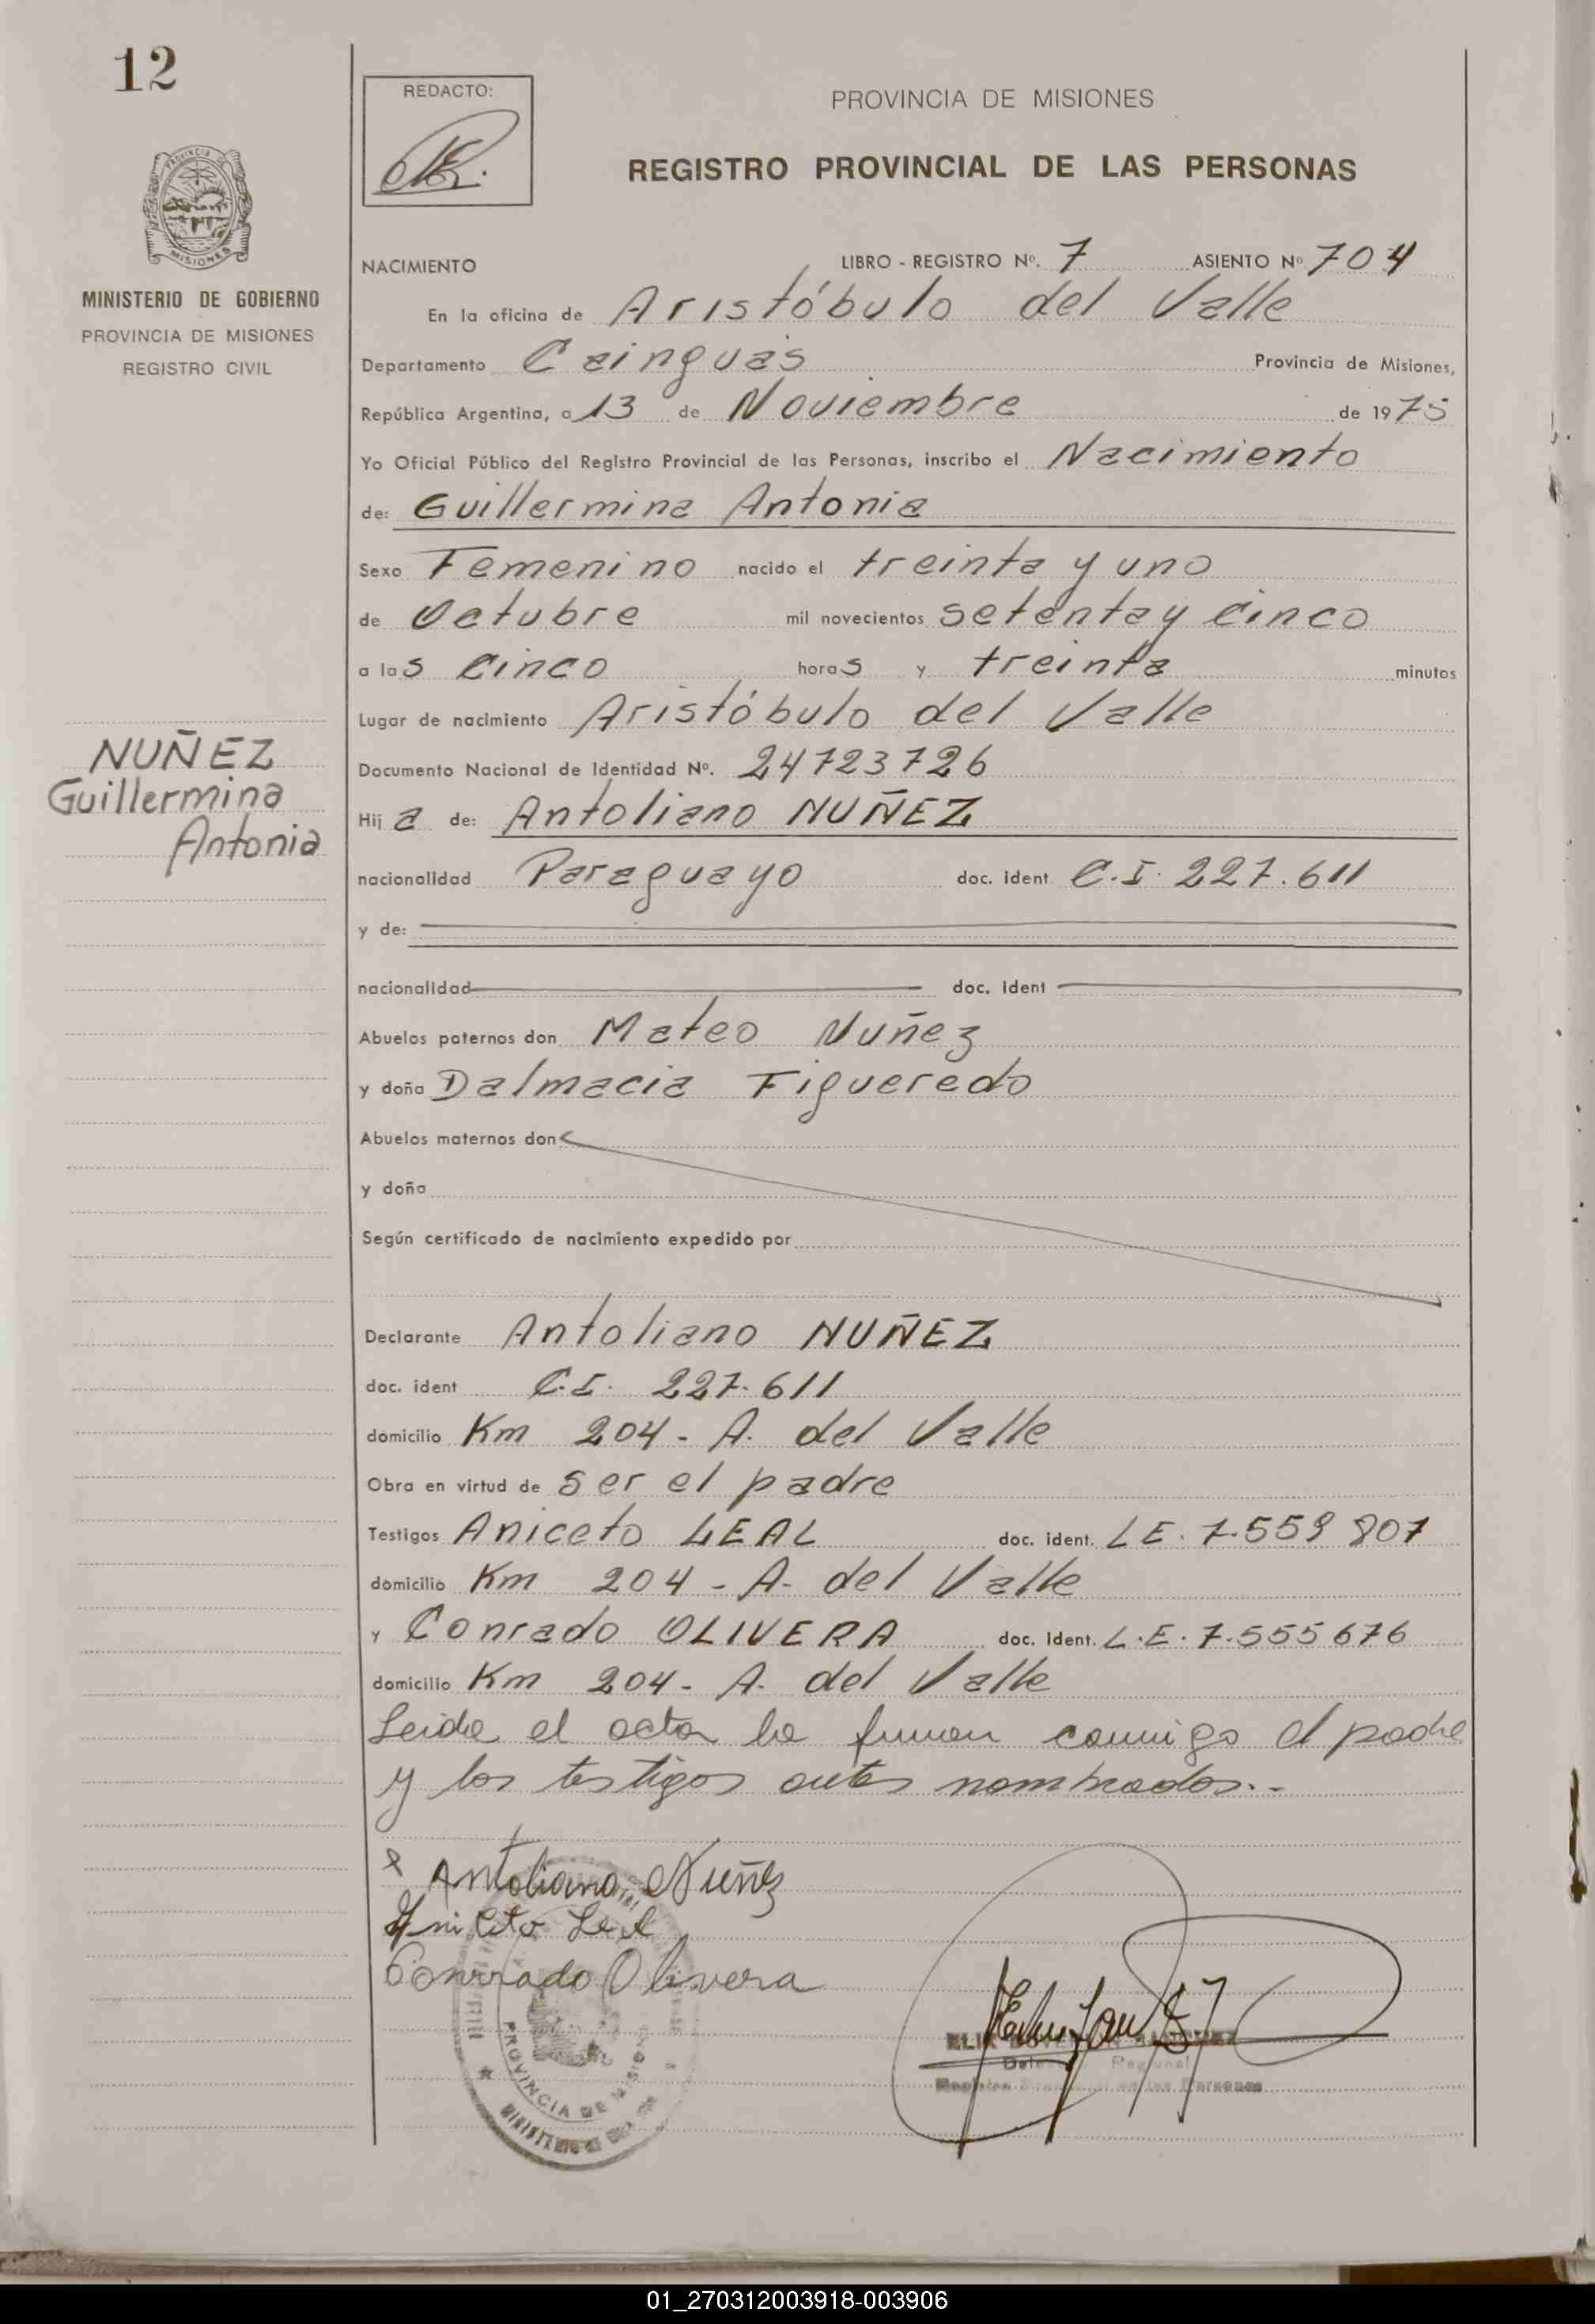 12
REDACTO:
PROVINCIA DE MISIONES
REGISTRO PROVINCIAL DE LAS PERSONAS
MISIONES
MINISTERIO DE GOBIERNO
PROVINCIA DE MISIONES
REGISTRO CIVIL
NACIMIENTO LIBRO - REGISTRO Nº. 7 ASIENTO Nº 704
En la oficina de Aristóbulo del Valle
Departamento Cainguás Provincia de Misiones,
República Argentina, a 13 de Noviembre de 1975
Yo Oficial Público del Registro Provincial de las Personas, inscribo el Nacimiento
de: Guillermina Antonia
Sexo Femenino nacido el treinta y uno
de Octubre mil novecientos setenta y cinco
a las cinco horas y treinta minutos
Lugar de nacimiento Aristóbulo del Valle
NUÑEZ
Guillermina
Antonia
Documento Nacional de Identidad Nº. 24723726
Hija de: Antoliano NUÑEZ
nacionalidad Paraguayo doc. ident C.I. 227.611
y de:
nacionalidad doc. ident
Abuelos paternos don Mateo Nuñez
y doña Dalmacia Figueredo
Abuelos maternos don
y doña
Según certificado de nacimiento expedido por
Declarante Antoliano NUÑEZ
doc. ident C.I. 227.611
domicilio Km 204 - A. del Valle
Obra en virtud de ser el padre
Testigos Aniceto LEAL doc. ident. LE. 7.559 807
domicilio Km 204 - A. del Valle
y Conrado OLIVERA doc. ident. L.E. 7.555 676
domicilio Km 204 - A. del Valle
Leida el acta la firman conmigo el padre
y los testigos antes nombrados.-
Antoliano Nuñez
Aniceto Leal
Conrrado Olivera
PROVINCIA DE MISIONES
01_270312003918-003906